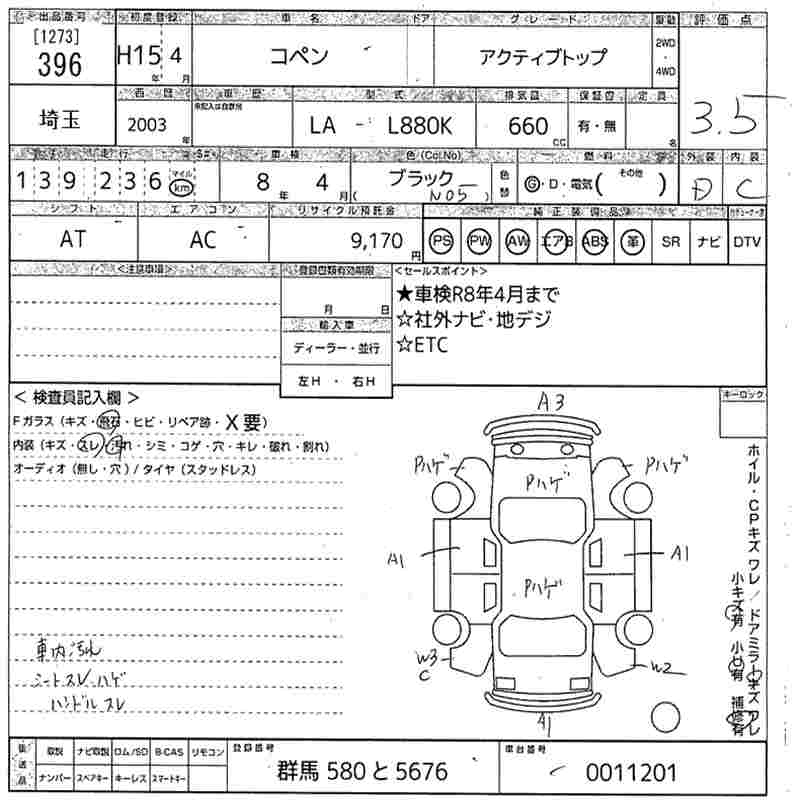 出品番号 初度登録 車名 ドア グレード 駆動 評価点
[1273]
396 H15 4 コペン アクティブトップ 2WD・4WD
年 月
西暦 車歴 型式 排気量 保証書 定員
埼玉 2003 年 未記入は自家用 LA - L880K 660 cc 有・無 名 3.5
走行 車検 色(Co.No) 燃料 外装 内装
139236 マイル km 8年 4月 ブラック (NO5) 色替 G・D・電気 ( その他 ) D C
シフト エアコン リサイクル預託金 純正装備品
AT AC 9,170円 PS PW AW エアB ABS 革 SR ナビ DTV
<注意事項> 登録書類有効期限 <セールスポイント>
月 日
★車検R8年4月まで
輸入車
☆社外ナビ・地デジ
ディーラー・並行
☆ETC
左H ・ 右H
< 検査員記入欄 > キーロック
Fガラス (キズ・飛石・ヒビ・リペア跡・X要)
内装 (キズ・スレ・汚れ・シミ・コゲ・穴・キレ・破れ・割れ)
オーディオ (無し・穴) / タイヤ (スタッドレス)
A3
Pハゲ Pハゲ Pハゲ
A1 A1
Pハゲ
W3 C W2
A1
ホイル・CPキズ ワレ / ドアミラーキズ ワレ
小キズ有 小凹有 補修有
車内汚れ
シートスレ ハゲ
ハンドルスレ
後送品 取説 ナビ取説 ロム/SD B-CAS リモコン 登録番号 車台番号
ナンバー スペアキー キーレス スマートキー 群馬 580 と 5676 0011201